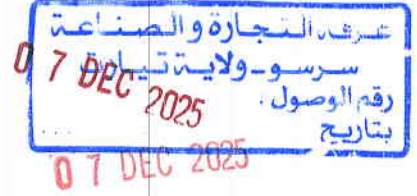 غرفة التجارة والصناعة
سرسو - ولاية تيارت
رقم الوصول .
بتاريخ
0 7 DEC 2025
0 7 DEC 2025